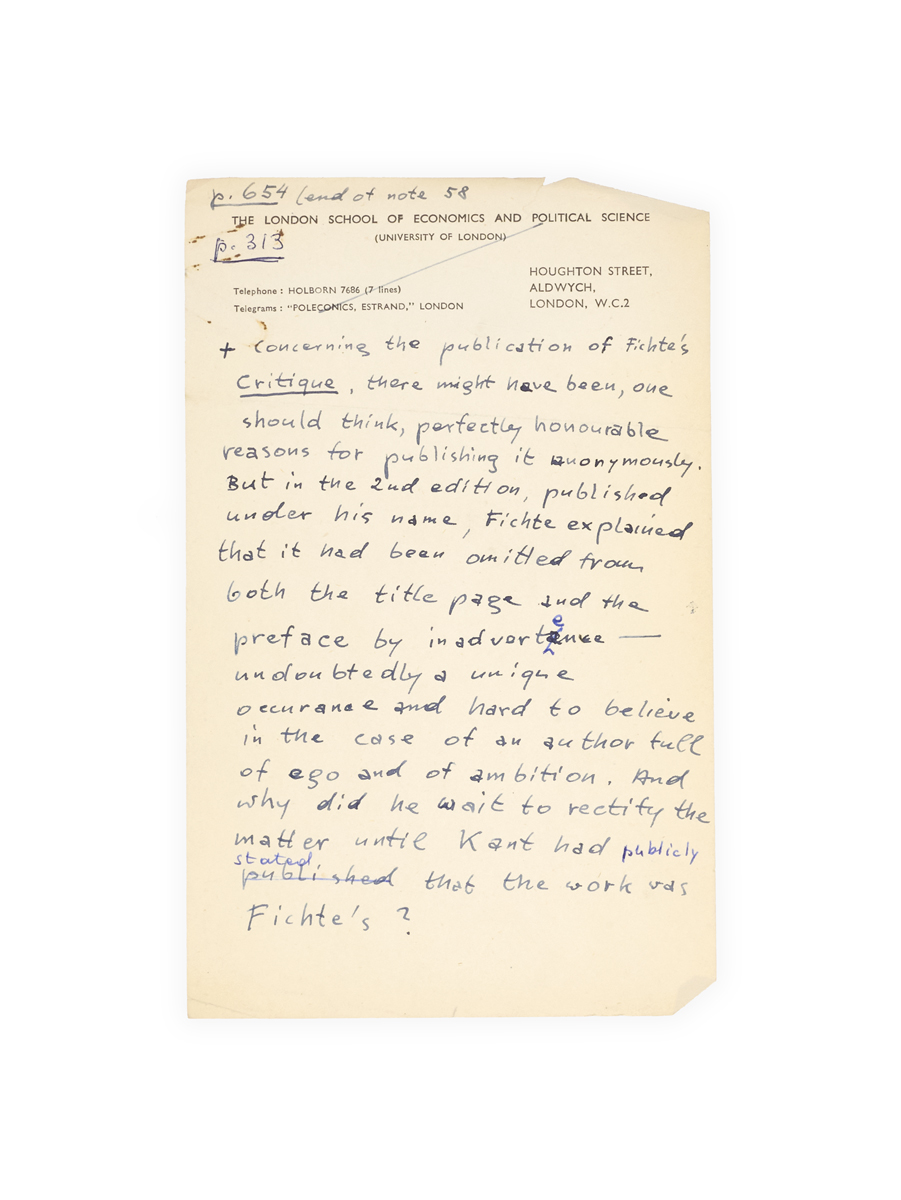 p. 654 (end of note 58
THE LONDON SCHOOL OF ECONOMICS AND POLITICAL SCIENCE
(UNIVERSITY OF LONDON)
p. 313
HOUGHTON STREET,
ALDWYCH,
LONDON, W.C.2
Telephone : HOLBORN 7686 (7 lines)
Telegrams : "POLECONICS, ESTRAND," LONDON
+ Concerning the publication of Fichte's
Critique, there might have been, one
should think, perfectly honourable
reasons for publishing it anonymously.
But in the 2nd edition, published
under his name, Fichte explained
that it had been omitted from
both the title page and the
preface by inadvertence —
undoubtedly a unique
occurance and hard to believe
in the case of an author full
of ego and of ambition. And
why did he wait to rectify the
matter until Kant had publicly
stated
published that the work was
Fichte's ?